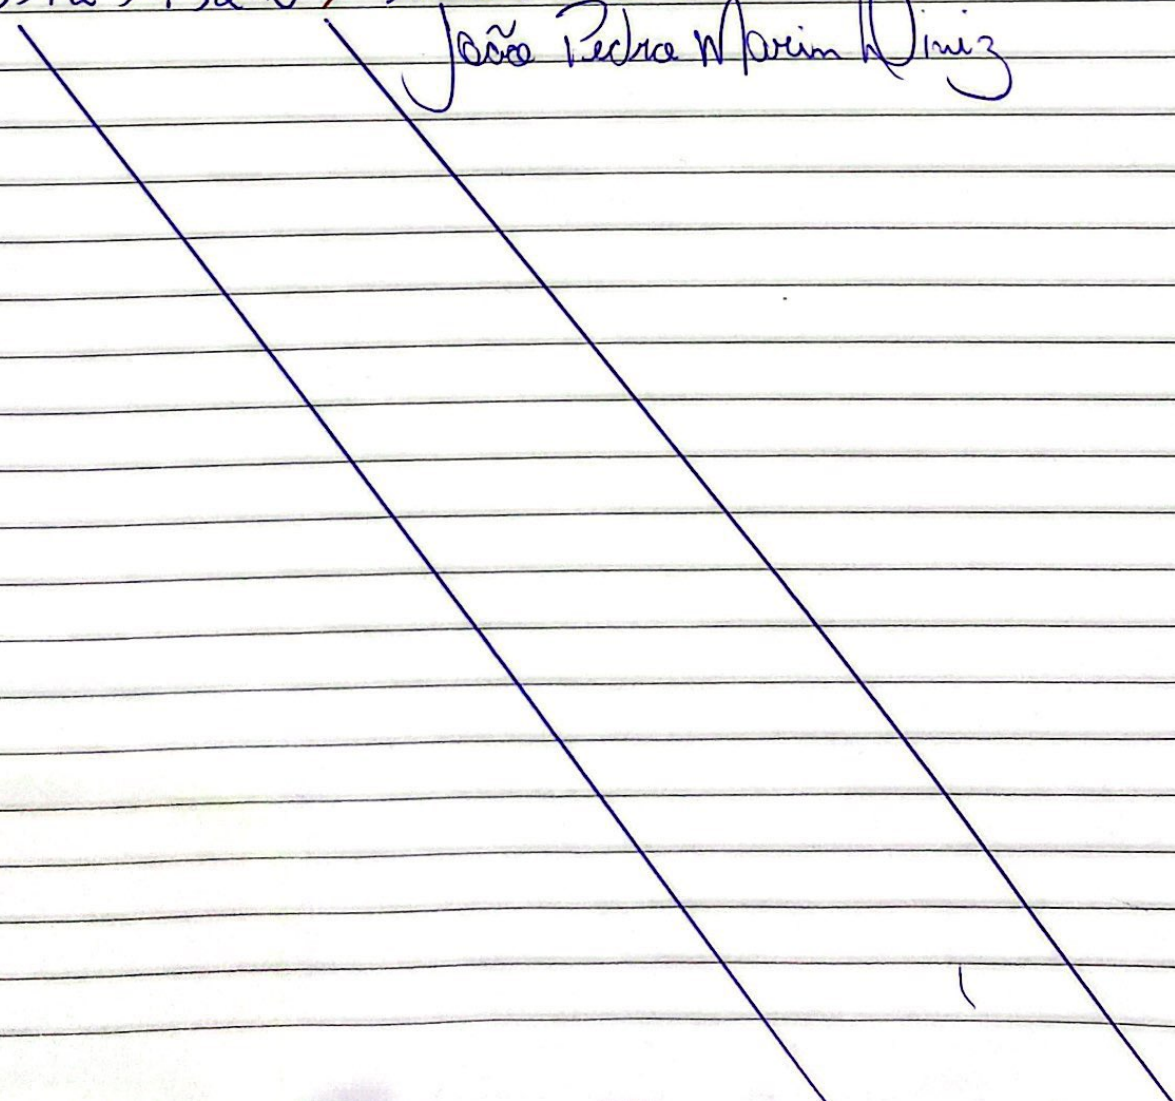 João Pedro Marim Diniz